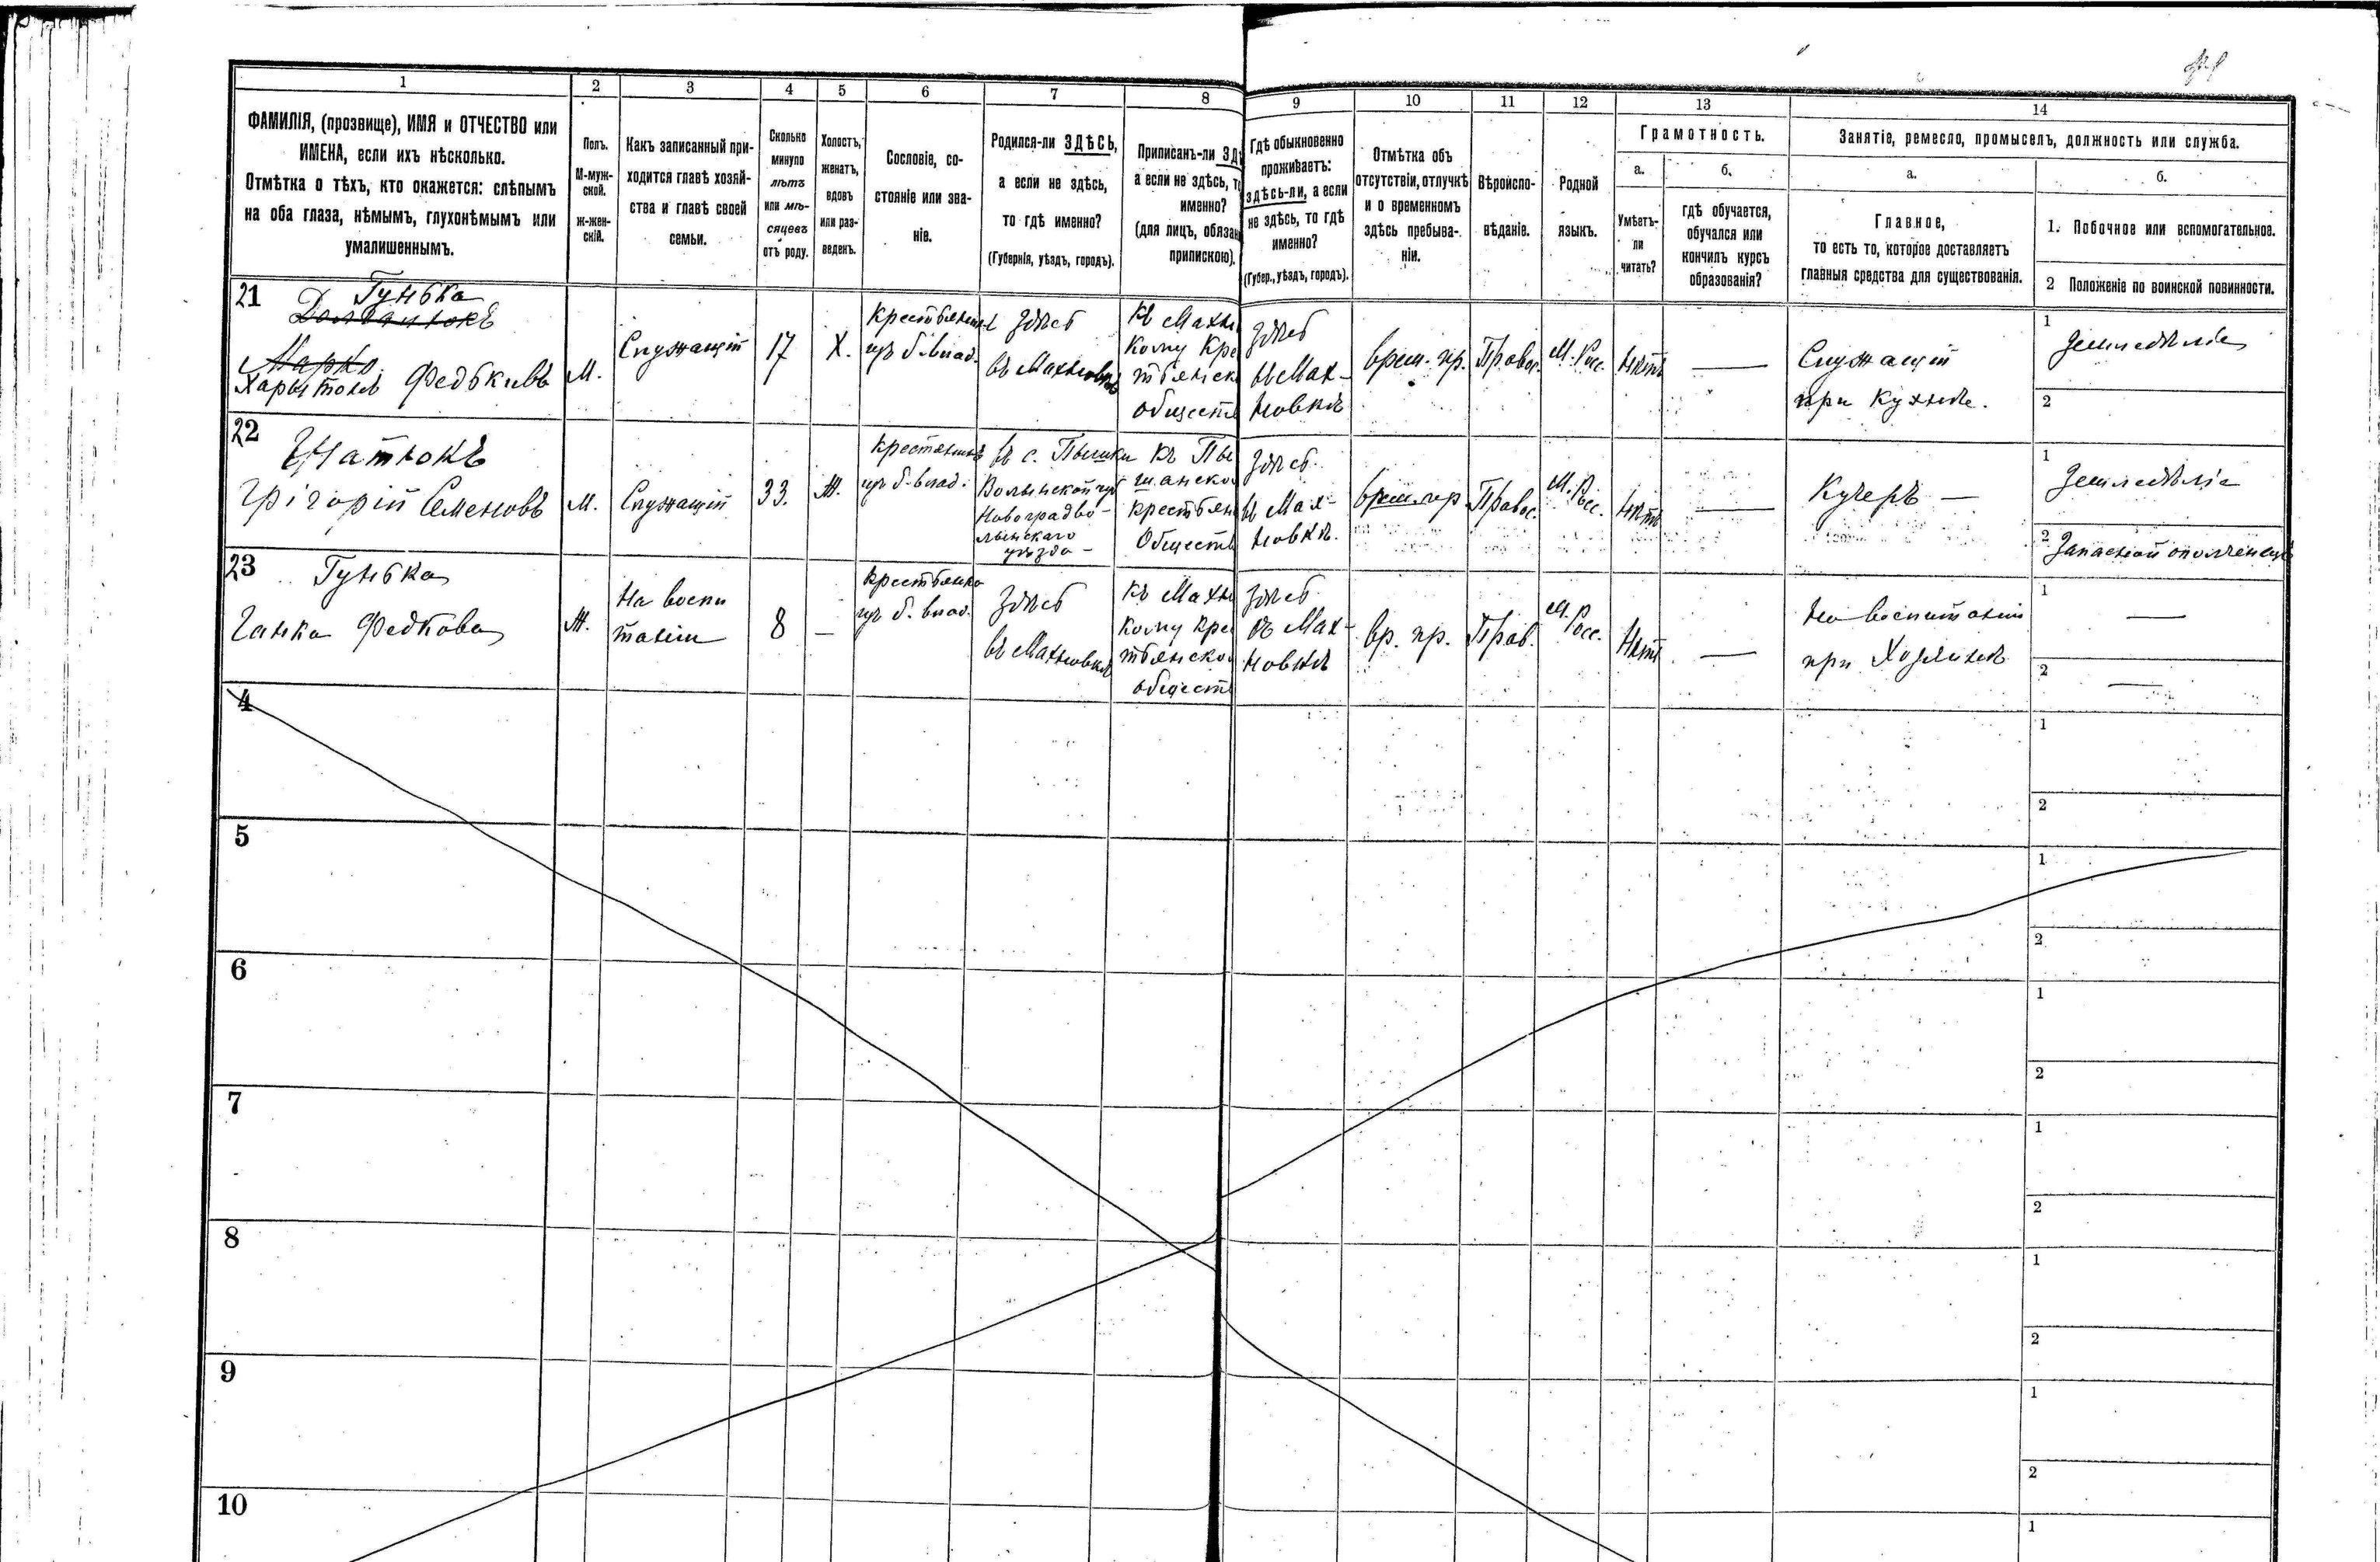 1 2 3 4 5 6 7 8 9 10 11 12 13 14
ФАМИЛІЯ, (прозвище), ИМЯ и ОТЧЕСТВО или
ИМЕНА, если ихъ нѣсколько.
Отмѣтка о тѣхъ, кто окажется: слѣпымъ
на оба глаза, нѣмымъ, глухонѣмымъ или
умалишеннымъ.
Полъ.
М-муж-
ской.
Ж-жен-
скій.
Какъ записанный при-
ходится главѣ хозяй-
ства и главѣ своей
семьи.
Сколько
минуло
лѣтъ
или мѣ-
сяцевъ
отъ роду.
Холостъ,
женатъ,
вдовъ
или раз-
веденъ.
Сословіе, со-
стояніе или зва-
ніе.
Родился-ли ЗДѢСЬ,
а если не здѣсь,
то гдѣ именно?
(Губернія, уѣздъ, городъ).
Приписанъ-ли ЗД
а если не здѣсь, т
именно?
(для лицъ, обязан
припискою).
Гдѣ обыкновенно
проживаетъ:
здѣсь-ли, а если
не здѣсь, то гдѣ
именно?
(Губер., уѣздъ, городъ).
Отмѣтка объ
отсутствіи, отлучкѣ
и о временномъ
здѣсь пребыва-
ніи.
Вѣроиспо-
вѣданіе.
Родной
языкъ.
Грамотность.
а.
Умѣетъ-
ли
читать?
б.
гдѣ обучается,
обучался или
кончилъ курсъ
образованія?
Занятіе, ремесло, промыселъ, должность или служба.
а.
Главное,
то есть то, которое доставляетъ
главныя средства для существованія.
б.
1. Побочное или вспомогательное.
2 Положеніе по воинской повинности.
21
Гунька
Марко
Харытонъ Федькивъ
М.
Служащій
17
Х.
изъ б. влад.
здѣсь
въ Махновкѣ
къ Махн
кому кре
тьянск
обществ
здѣсь
въ Мах-
новкѣ
врем. пр.
Правос.
М. Росс.
Нѣтъ
—
Служащій
при кухнѣ.
1
Земледѣліе
2
22
Григорій Семеновъ
М.
Служащій
33.
Ж.
крестянинъ
изъ б. влад.
въ с. Пышки
Волынской губ
Новоградво-
лынскаго
уѣзда –
къ Пы
шанско
крестьян
Обществ
здѣсь
въ Мах-
новкѣ.
врем. пр
Правос.
М. Росс.
Нѣтъ
—
Кучеръ —
1
Земледѣліе
2
Запасной ополченецъ
23
Гунька
Ганка Федкова
Ж.
На воспи
таніи
8
—
крестьянка
изъ б. влад.
здѣсь
въ Махновкѣ
къ Махн
кому кре
тьянско
обществ
здѣсь
въ Мах-
новкѣ
вр. пр.
Прав.
М. Росс.
Нѣтъ
—
На воспитаніи
при Хозяинѣ
1
—
2
—
4
1
2
5
1
2
6
1
2
7
1
2
8
1
2
9
1
2
10
1